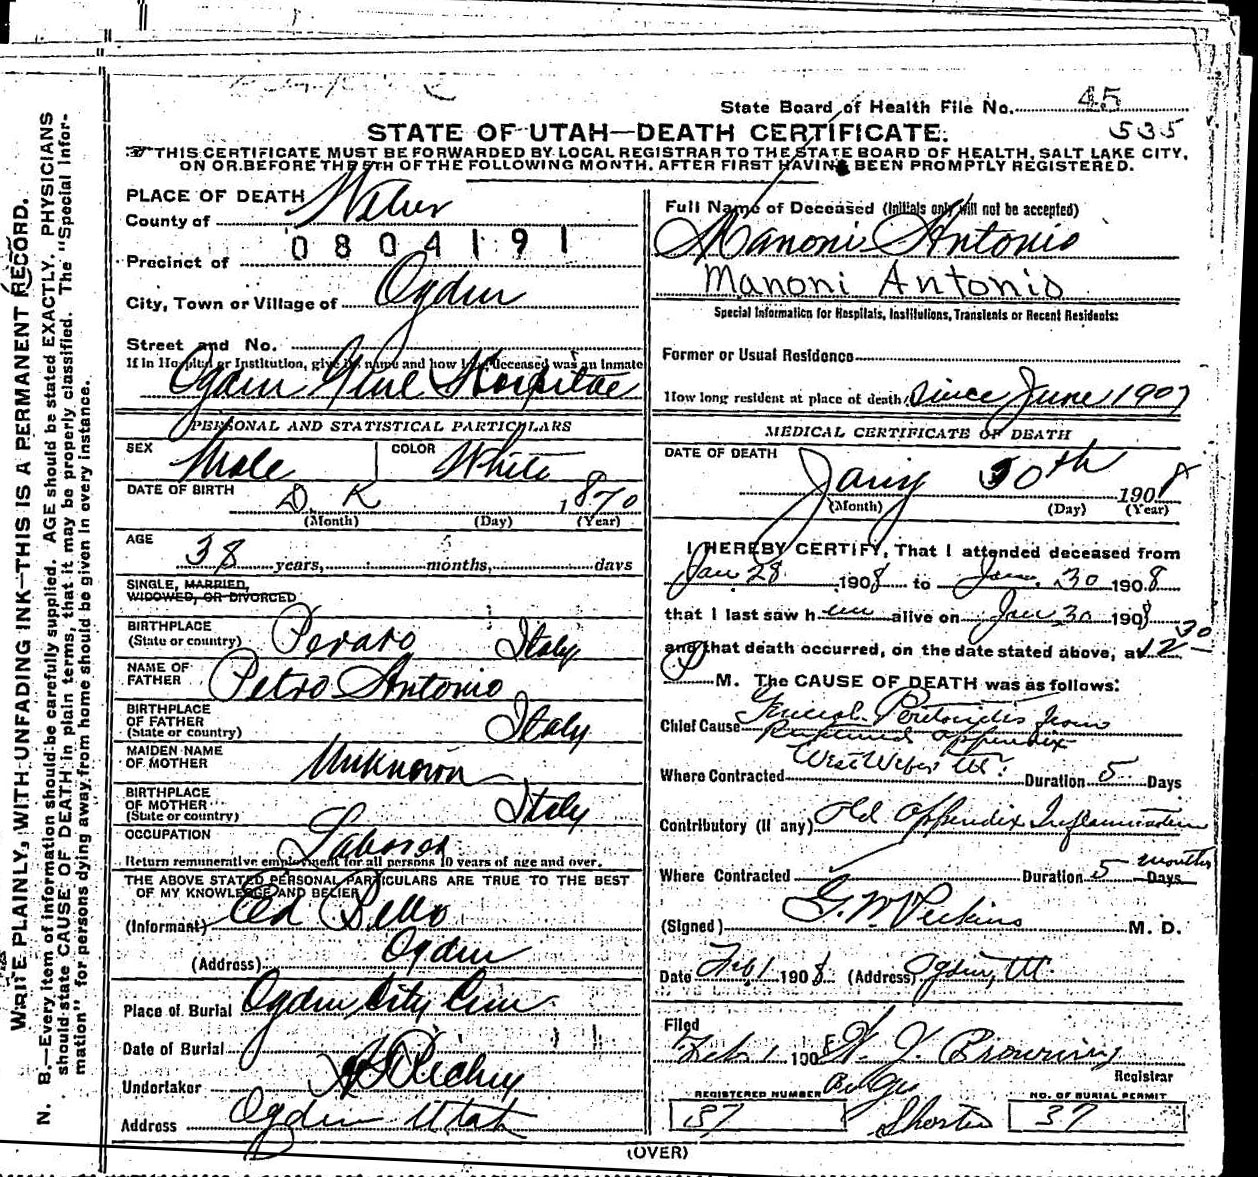 State Board of Health File No. 45
535
STATE OF UTAH—DEATH CERTIFICATE.
THIS CERTIFICATE MUST BE FORWARDED BY LOCAL REGISTRAR TO THE STATE BOARD OF HEALTH, SALT LAKE CITY,
ON OR BEFORE THE 5TH OF THE FOLLOWING MONTH, AFTER FIRST HAVING BEEN PROMPTLY REGISTERED.
WRITE PLAINLY, WITH UNFADING INK—THIS IS A PERMANENT RECORD.
N. B.—Every item of information should be carefully supplied. AGE should be stated EXACTLY. PHYSICIANS
should state CAUSE OF DEATH in plain terms, that it may be properly classified. The "Special Infor-
mation" for persons dying away from home should be given in every instance.
PLACE OF DEATH
County of Weber
0804191
Precinct of
City, Town or Village of Ogden
Street and No.
If in Hospital or Institution, give its name and how long deceased was an inmate
Ogden Genl Hospital
PERSONAL AND STATISTICAL PARTICULARS
SEX Male COLOR White
DATE OF BIRTH D. K 1870
(Month) (Day) (Year)
AGE
38 years, months, days
SINGLE, MARRIED,
WIDOWED, OR DIVORCED
BIRTHPLACE
(State or country) Italy
NAME OF
FATHER Petro Antonio
BIRTHPLACE
OF FATHER
(State or country) Italy
MAIDEN NAME
OF MOTHER Unknown
BIRTHPLACE
OF MOTHER
(State or country) Italy
OCCUPATION Laborer
Return remunerative employment for all persons 10 years of age and over.
THE ABOVE STATED PERSONAL PARTICULARS ARE TRUE TO THE BEST
OF MY KNOWLEDGE AND BELIEF
(Informant) Ed Bello
(Address) Ogden
Place of Burial Ogden City Cem
Date of Burial
Undertaker
Address Ogden Utah
Full Name of Deceased (Initials only will not be accepted)
Manoni Antonio
Manoni Antonio
Special Information for Hospitals, Institutions, Transients or Recent Residents:
Former or Usual Residence
How long resident at place of death, Since June 1907
MEDICAL CERTIFICATE OF DEATH
DATE OF DEATH
Jany 30th 1908
(Month) (Day) (Year)
I HEREBY CERTIFY, That I attended deceased from
Jan 28 1908 to Jan. 30 1908
that I last saw him alive on Jan 30 1908
and that death occurred, on the date stated above, at 12 30
P M. The CAUSE OF DEATH was as follows:
Chief Cause General Peritonitis from
Ruptured appendix
Where Contracted West Weber Ut. Duration 5 Days
Contributory (if any) Old Appendix Inflammation
Where Contracted Duration 5 months Days
(Signed) G. W. Perkins M. D.
Date Feb 1 1908 (Address) Ogden, Ut.
Filed
Feb 1 1908 Browning
Registrar
REGISTERED NUMBER
37
NO. OF BURIAL PERMIT
37
(OVER)